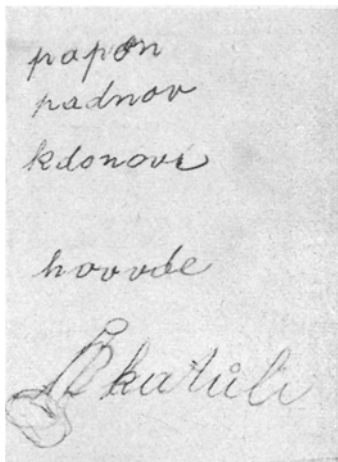 papon
padnov
kdonovi
hovvde
Škatůli